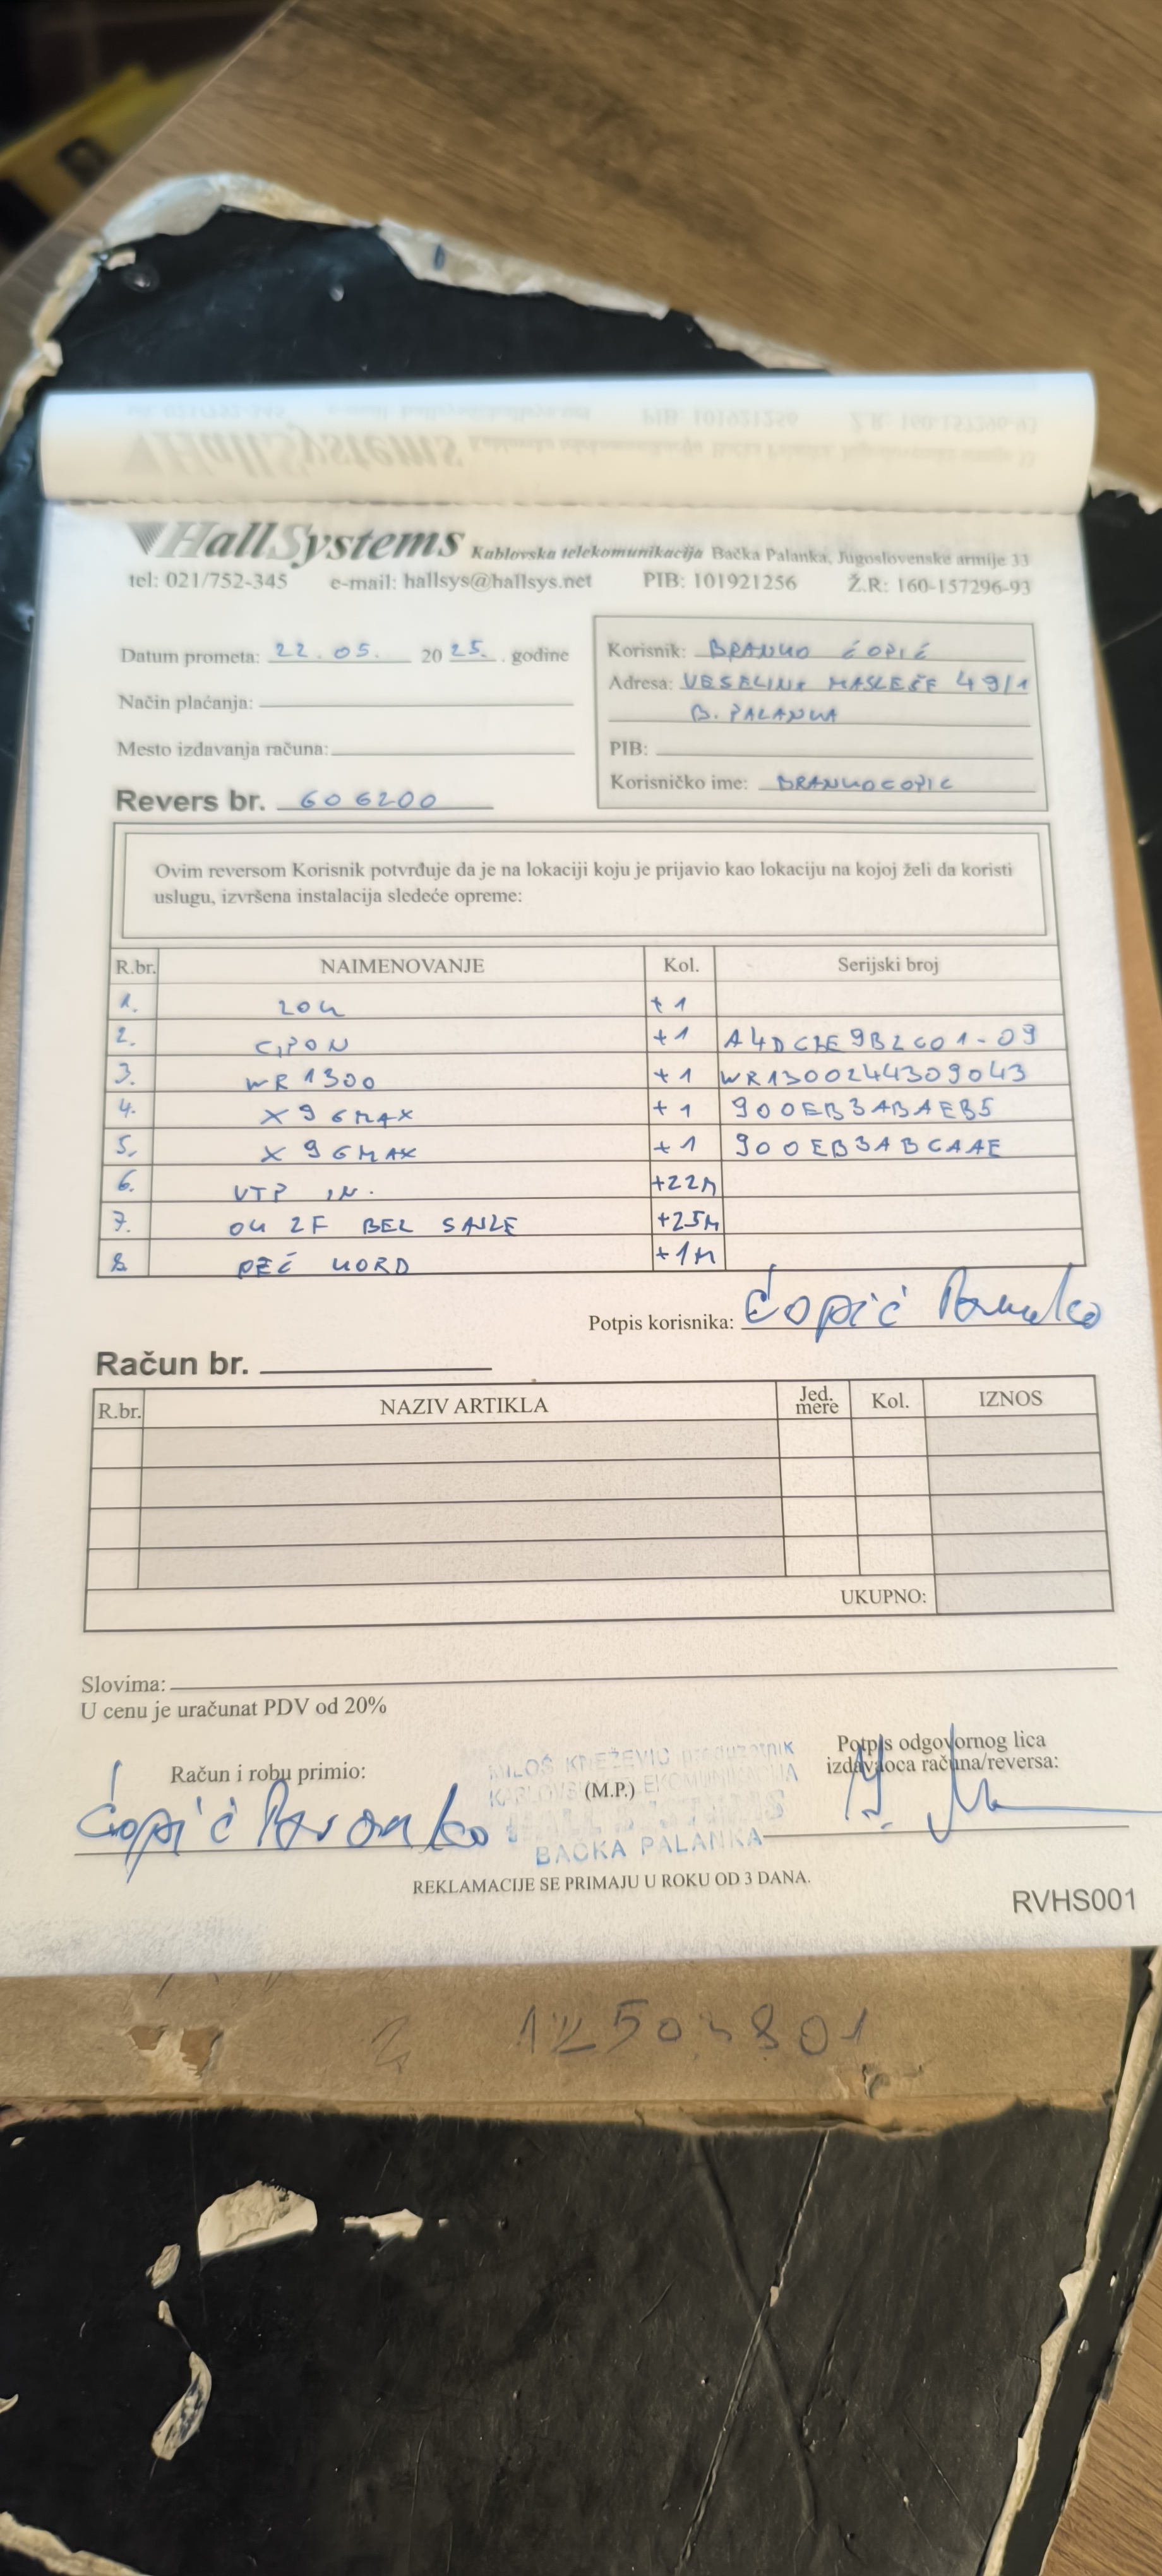 HallSystems Kablovska telekomunikacija Bačka Palanka, Jugoslovenske armije 33
tel: 021/752-345 e-mail: hallsys@hallsys.net PIB: 101921256 Ž.R: 160-157296-93
Datum prometa: 22.05. 2025. godine
Način plaćanja:
Mesto izdavanja računa:
Revers br. 606200
Korisnik: BRANKO ĆOPIĆ
Adresa: VESELINA MASLEŠE 49/1
B. PALANKA
PIB:
Korisničko ime: BRANKOCOPIC
Ovim reversom Korisnik potvrđuje da je na lokaciji koju je prijavio kao lokaciju na kojoj želi da koristi
uslugu, izvršena instalacija sledeće opreme:
R.br. NAIMENOVANJE Kol. Serijski broj
1. ZOK +1
2. GPON +1 A4DC7E9B2C01-09
3. WR1300 +1 WR1300244309043
4. X96MAX +1 900EB3ABAEB5
5. X96MAX +1 900EB3ABCAAE
6. UTP IN. +22M
7. OK 2F BEL SAJLE +25M
8. PEČ KORD +1M
Potpis korisnika: Ćopić Branko
Račun br.
R.br. NAZIV ARTIKLA Jed. mere Kol. IZNOS
UKUPNO:
Slovima:
U cenu je uračunat PDV od 20%
Račun i robu primio:
Ćopić Branko
MILOŠ KNEŽEVIĆ preduzetnik
(M.P.)
BAČKA PALANKA
Potpis odgovornog lica
izdavaoca računa/reversa:
REKLAMACIJE SE PRIMAJU U ROKU OD 3 DANA.
RVHS001